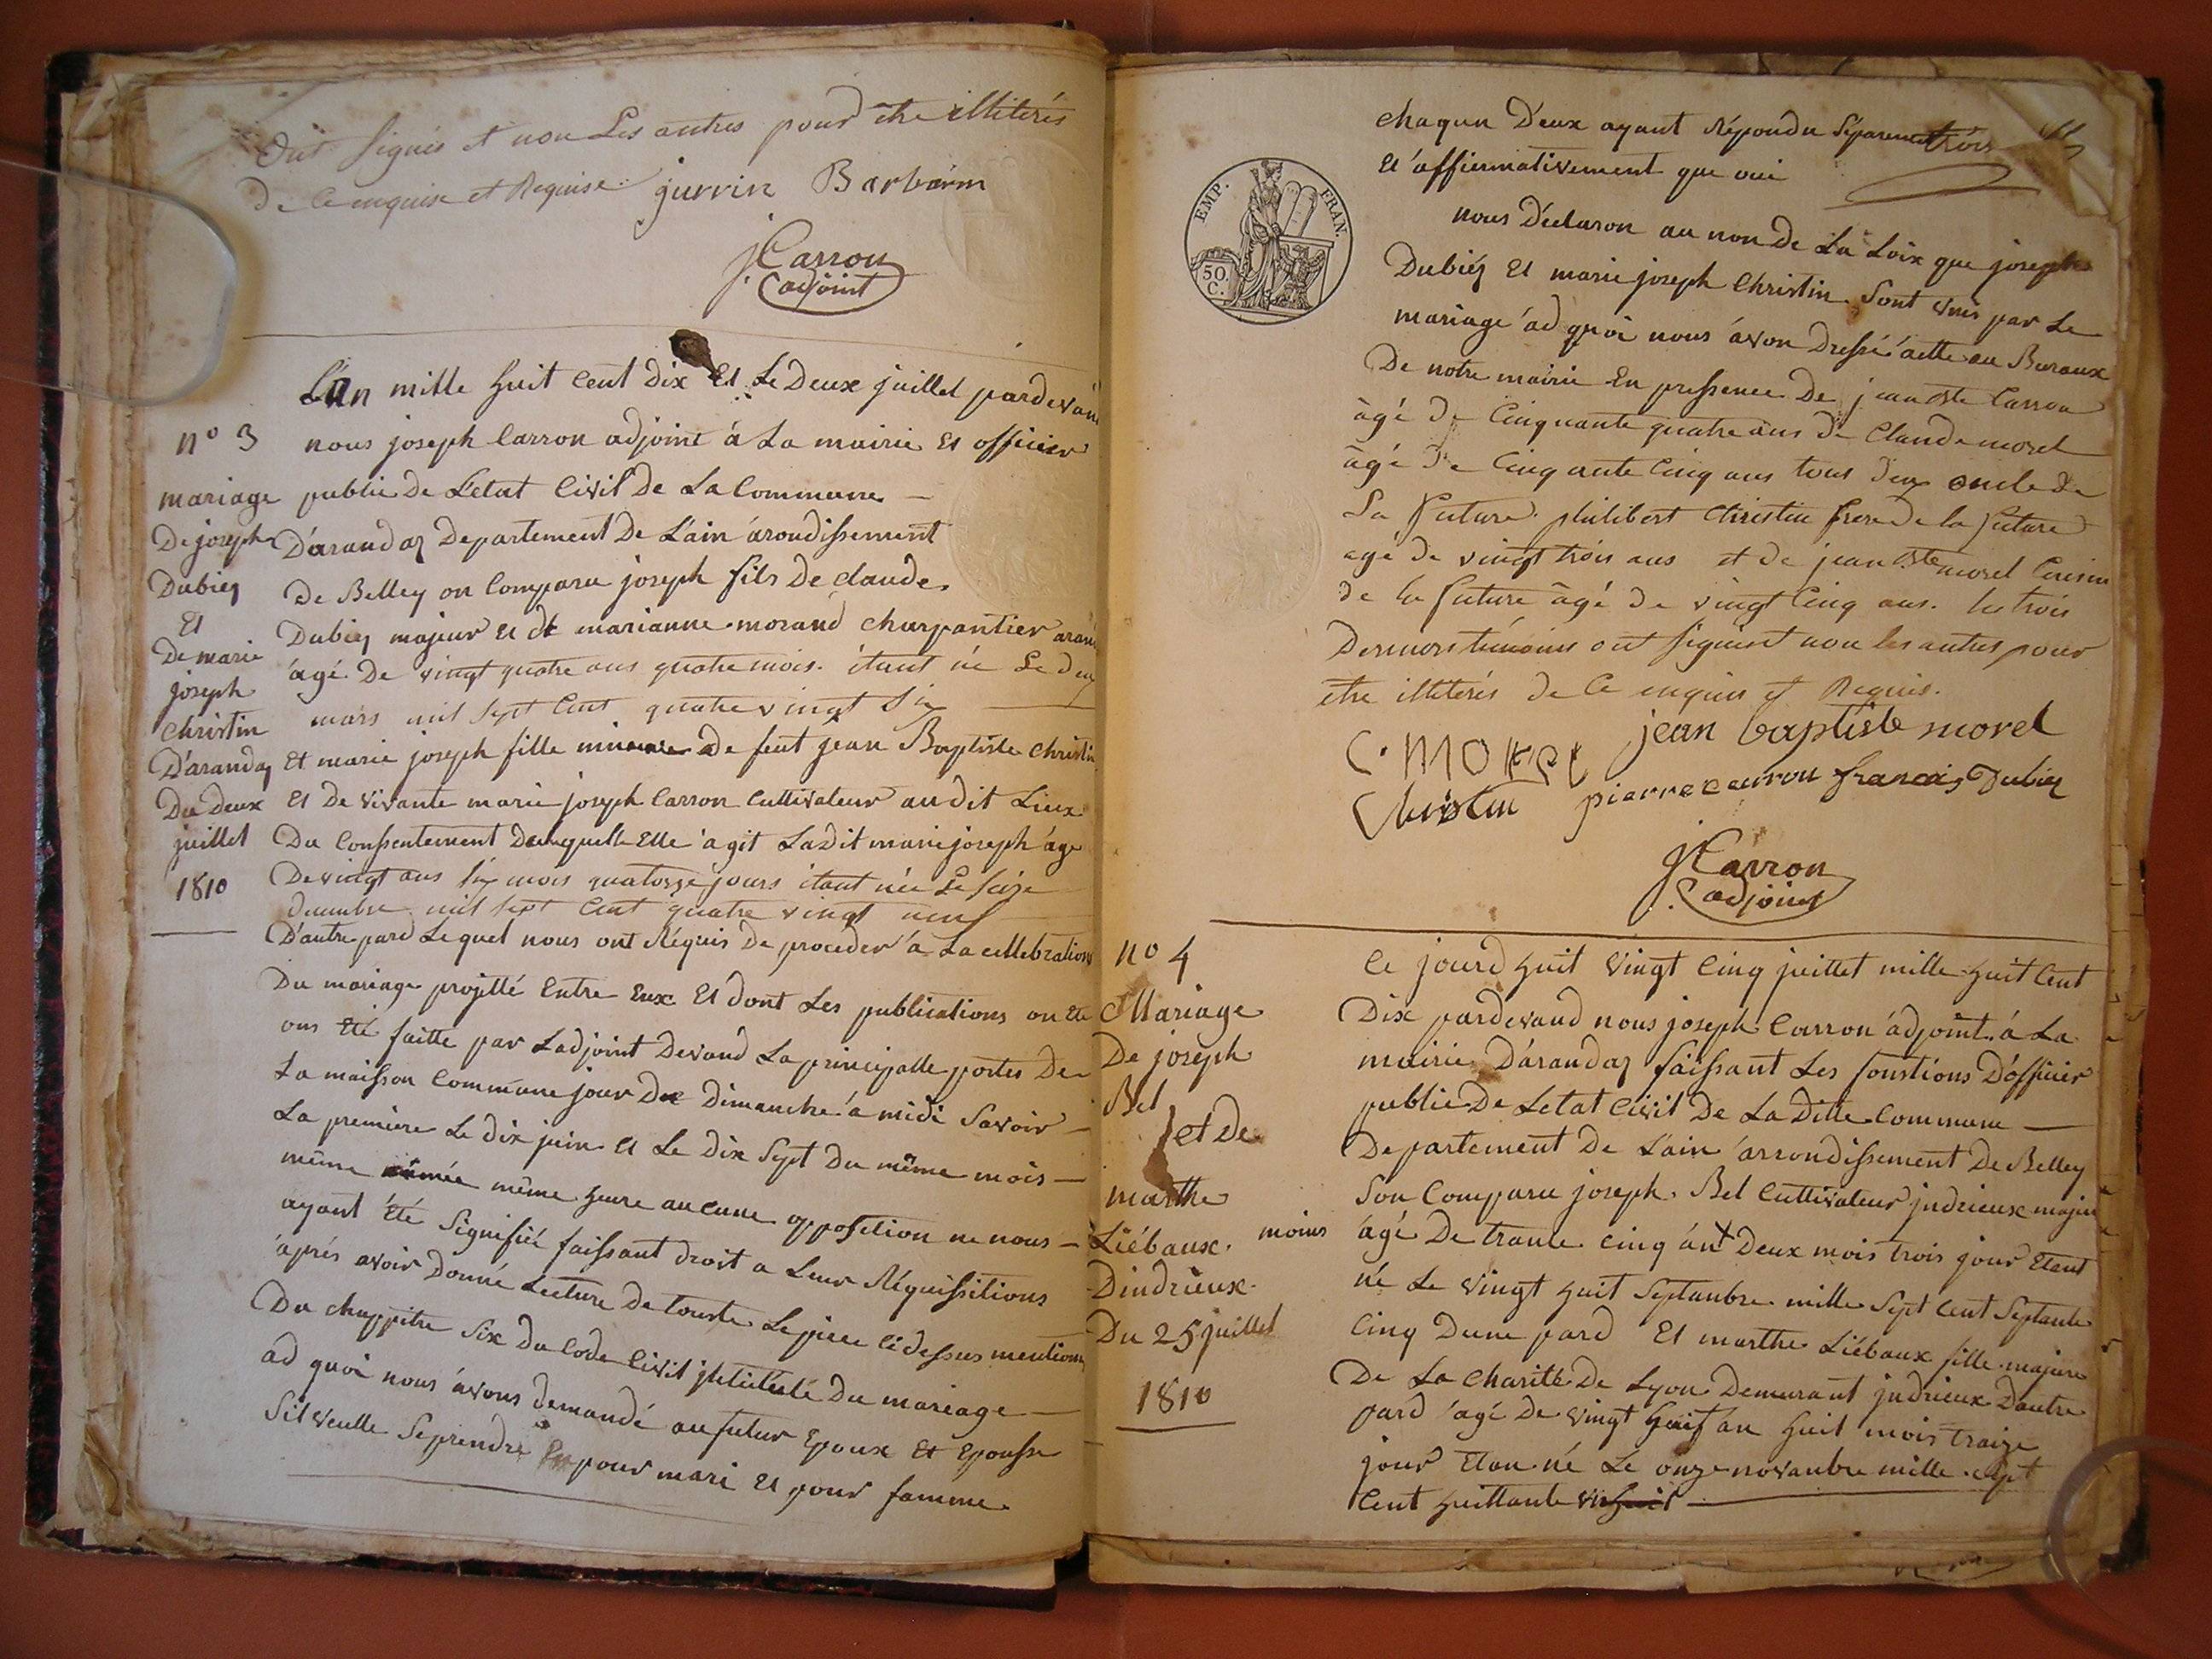 Ont signés et non Les autres pour être illiterés
De Ce enquise et Requise jurrin Barbarin
J Carron
adjoint
L'an mille huit Cent Dix Et Le Deux juillet pardevan
nous joseph Carron adjoint á La mairie Et officier
public De L'etat Civil De La Commune
D'arandas Departement De L'ain arondissement
De Belley on Comparu joseph fils De claude
Dubiey majeur Et de marianne morand charpantier aran
ágé De vingt quatre ans quatre mois étant né Le deux
mars mil sept Cent quatre vingt six
Et marie joseph fille mineure De feut jean Baptiste Christin
Et De vivante marie joseph Carron Cultivateur audit Lieux
Du Consentement Delaquelle Elle agit Ladit marie joseph áge
De vingt ans six mois quatorze jours étant née Le seize
decembre mil sept Cent quatre vingt neuf
D'autre pard Lequel nous ont Réquis De proceder á La cellebration
Du mariage projetté Entre Eux Et dont Les publications on Eté
ons Eté faitte par Ladjoint Devand La principalle portes De
La maisson Commune jour De Dimanche á midi Savoir
La premiere Le dix juin Et Le Dix Sept Du même mois
même année même heure aucune opposition ne nous
ayant été Signifié faissant droit a Leur Réquissitions
áprés avoir Donné Lecture De touste Le piece Cidessus mention
Du chappitre Six Du Code Civil jntitulé Du mariage
ad quoi nous ávons demandé au futur Epoux Et Epousse
Sil veulle Seprendre pour mari Et pour famme
n° 3
mariage
De joseph
Dubiey
Et
De marie
joseph
Christin
D'arandas
Du Deux
juillet
1810
trois
chaqun D'eux ayant Répondu Séparement
Et affiermativement que oui
EMP. FRAN.
50. C.
nous Déclaron au non De La Loix que joseph
Dubiey Et marie joseph Christin Sont vnis par Le
mariage ad quoi nous ávon Dressé acte au Buraux
De notre mairie En pressence De jean Bte Carron
ágé de Cinquante quatre ans de Claude morel
ágé De Cinquante Cinq ans tous deux oncle de
La Future philibert Christin frere de la future
agé de vingt trois ans et de jean Bte morel Cousin
de la future ágé de vingt Cinq ans. les trois
Derniers témoins ont signés et non les autres pour
etre illiterés de Ce enquis et Requis.
C. MOREL jean baptiste morel
Christin pierre carron francois Dubiey
J Carron
adjoint
n° 4
Mariage
De joseph
Bel
et De
marthe
Liébaux
Dindrieux
Du 25 juillet
1810
Ce jourd huit vingt Cinq juillet mille huit Cent
Dix pardevand nous joseph Carron ádjoint á La
mairie D'arandas faissant Les fonstions D'officier
public De Letat Civil De La Ditte Commune
Departement De L'ain arrondissement De Belley
Son Comparu joseph Bel Cultivateur jndrieux majeu
moins ágé De trante Cinq án Deux mois trois jour Etant
né Le vingt huit Septanbre mille Sept Cent Septante
Cinq Dune pard Et marthe Liébaux fille majure
De La Charité De Lyon Demurant jndrieux D'autre
pard ágé De vingt huit an huit mois traize
jour Etan né Le onze novanbre mille Sept
Cent huittante